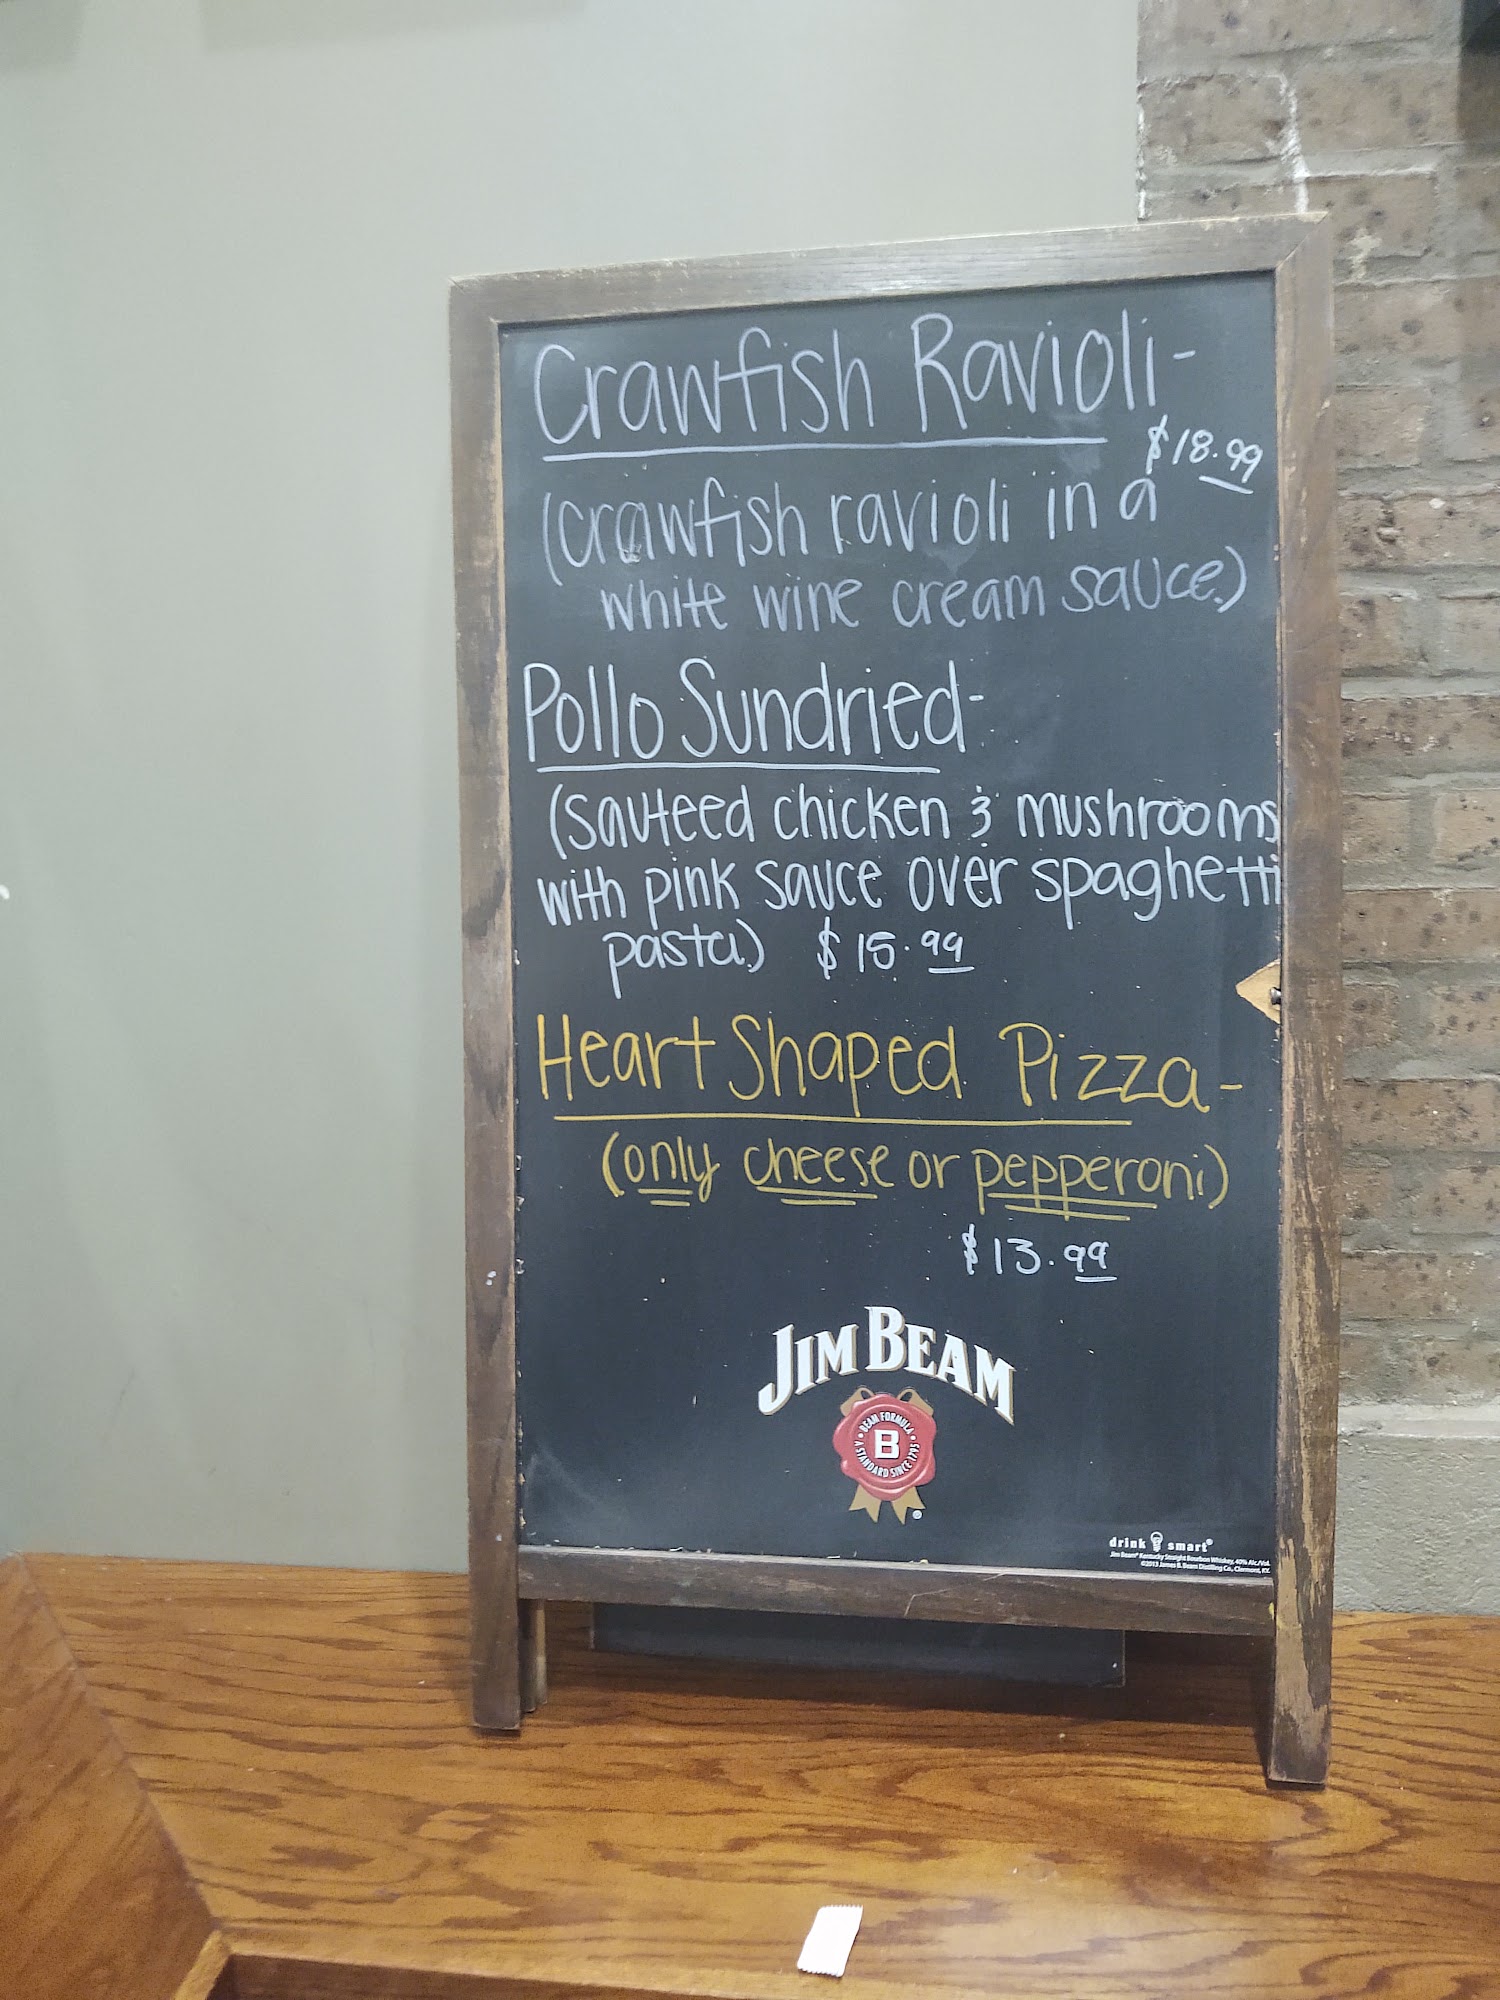 Crawfish Ravioli-
$18.99
(crawfish ravioli in a
white wine cream sauce.)
Pollo Sundried-
(sauteed chicken & mushrooms
with pink sauce over spaghetti
pasta.) $15.99
Heart Shaped Pizza-
(only cheese or pepperoni)
$13.99
JIM BEAM
BEAM FORMULA
B
A STANDARD SINCE 1795
®
drink smart®
Jim Beam® Kentucky Straight Bourbon Whiskey, 40% Alc./Vol.
©2013 James B. Beam Distilling Co., Clermont, KY.